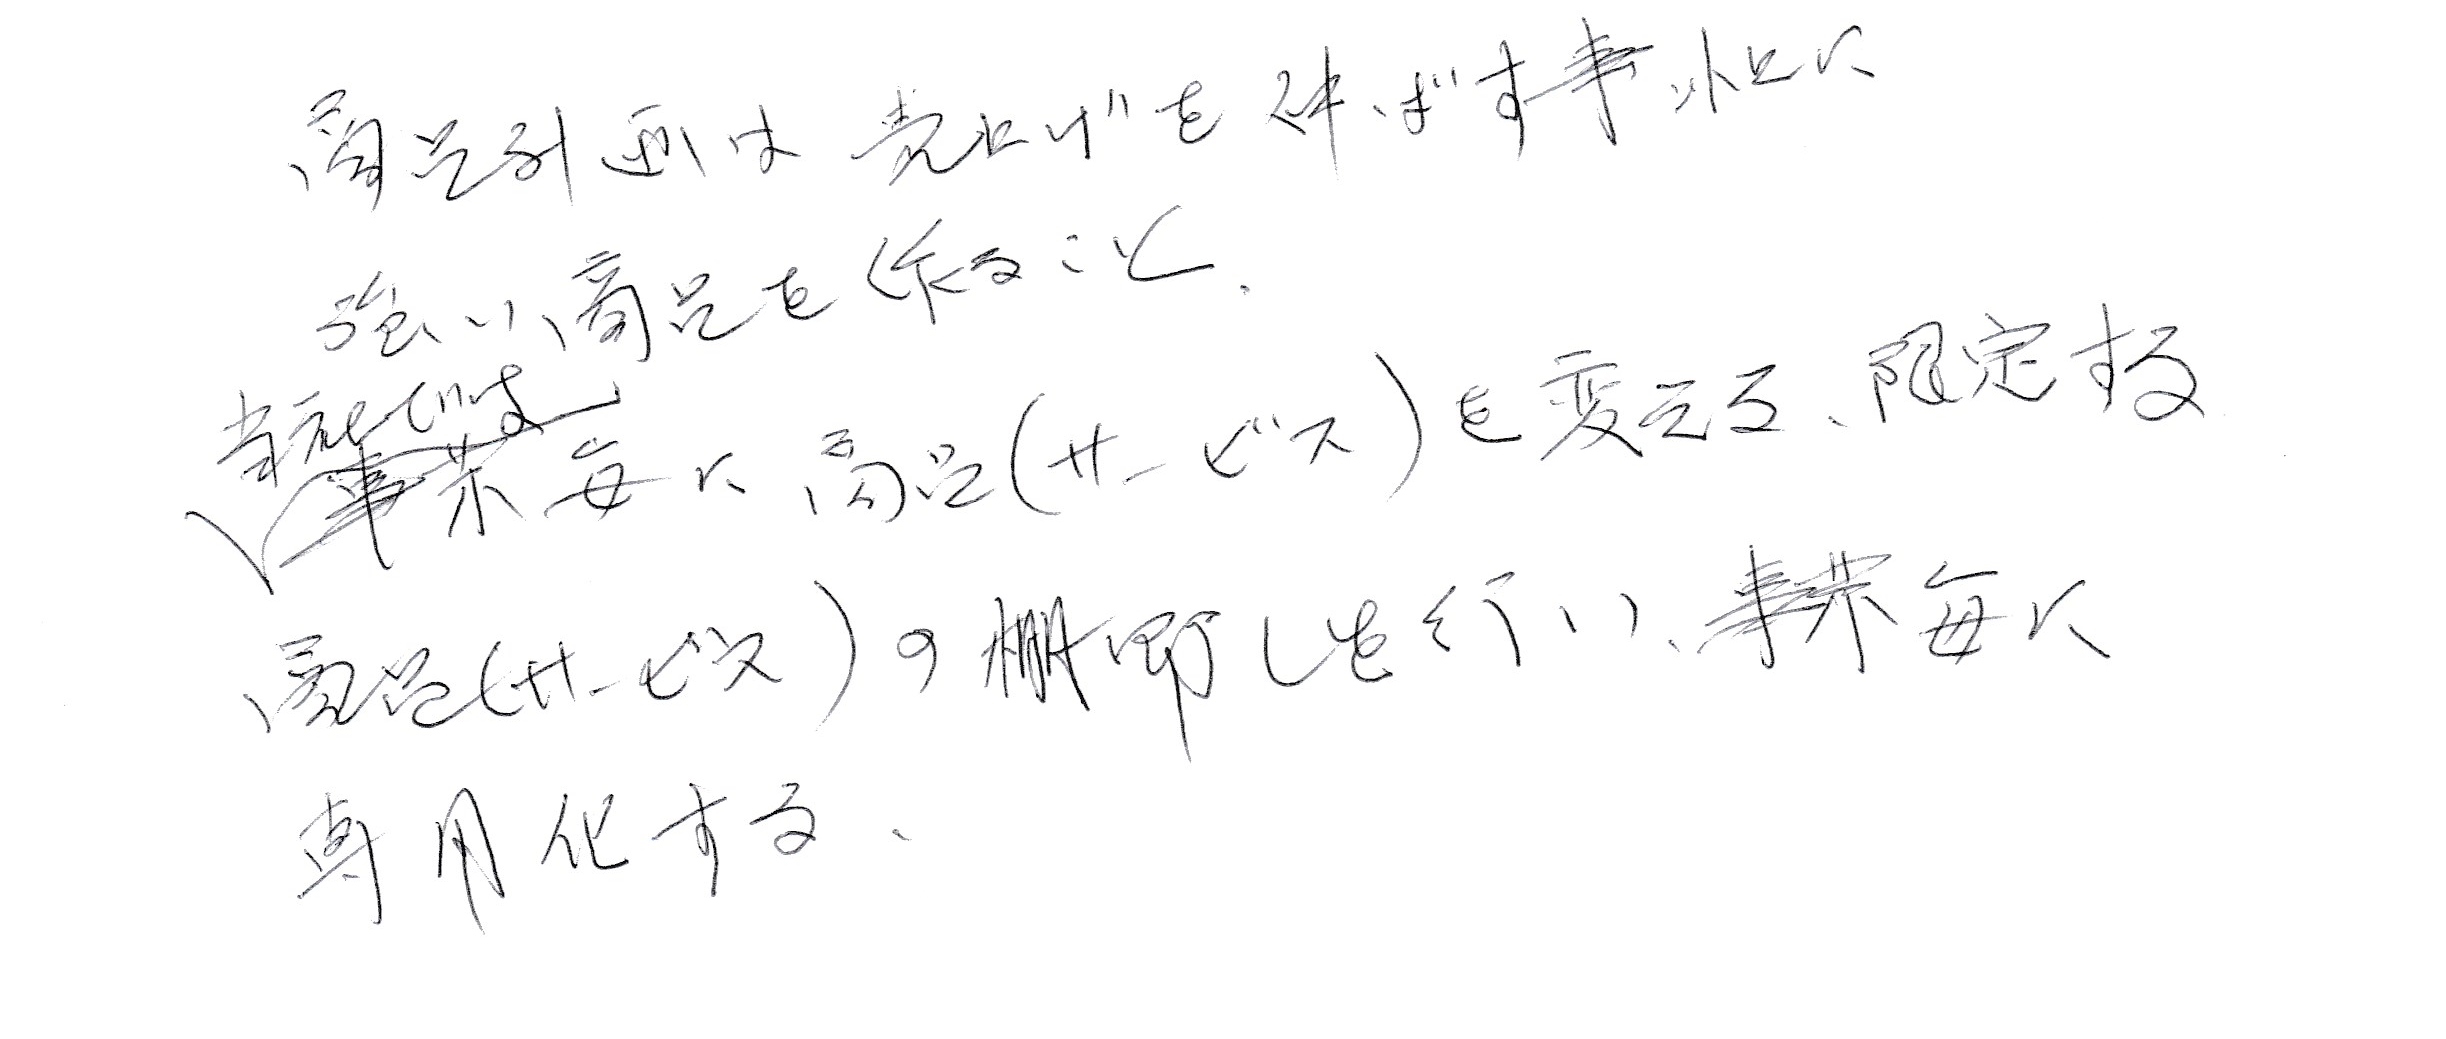 商品計画は売上げを伸ばす事以上に
強い商品を作ること、
当社では
事業毎に商品(サービス)を変える、限定する
商品(サービス)の棚卸しを行い、事業毎に
専用化する、